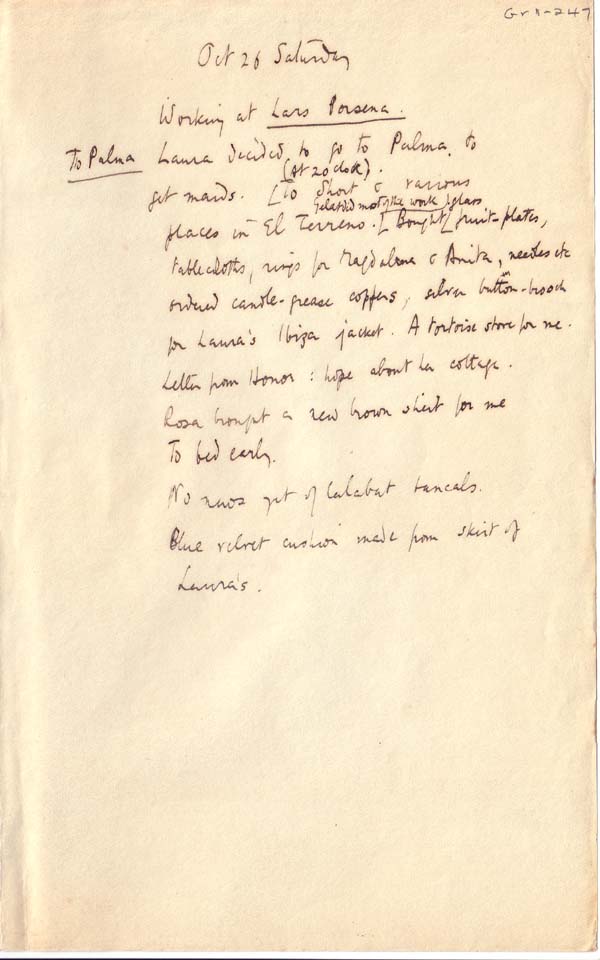 Gr 1-247
Oct 26 Saturday
Working at Lars Porsena.
To Palma Laura decided to go to Palma, to
(At 2 oclock).
get maids. [To Short & various
Gelat did most of the work) glass
places in El Terreno. [Bought [fruit-plates,
tablecloths, rings for Magdalena & Anita, needles etc
ordered candle-grease coppers, silver button-brooch
for Laura's Ibiza jacket. A tortoise stove for me.
Letter from Honor: hope about her cottage.
Rosa brought a new brown shirt for me
To bed early.
No news yet of Calabat tancals.
Blue velvet cushion made from skirt of
Laura's.